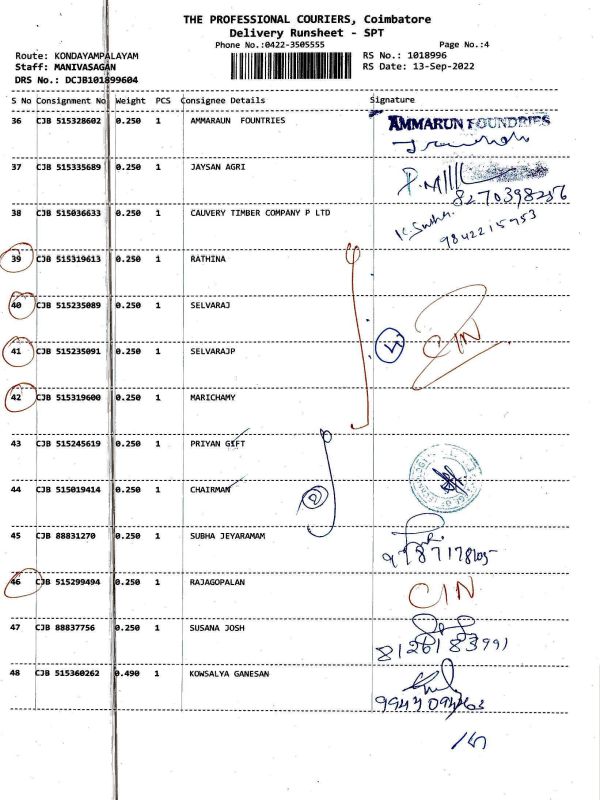 THE PROFESSIONAL COURIERS, Coimbatore
Delivery Runsheet - SPT
Phone No.:0422-3505555 Page No.:4
Route: KONDAYAMPALAYAM RS No.: 1018996
Staff: MANIVASAGAN RS Date: 13-Sep-2022
DRS No.: DCJB101899604
S No Consignment No Weight PCS Consignee Details Signature
36 CJB 515328602 0.250 1 AMMARAUN FOUNTRIES AMMARUN FOUNDRIES
37 CJB 515335689 0.250 1 JAYSAN AGRI
8270398256
38 CJB 515036633 0.250 1 CAUVERY TIMBER COMPANY P LTD
9842215953
39 CJB 515319613 0.250 1 RATHINA
40 CJB 515235089 0.250 1 SELVARAJ
41 CJB 515235091 0.250 1 SELVARAJP CIN
42 CJB 515319600 0.250 1 MARICHAMY
43 CJB 515245619 0.250 1 PRIYAN GIFT
44 CJB 515019414 0.250 1 CHAIRMAN 2
45 CJB 88831270 0.250 1 SUBHA JEYARAMAM
46 CJB 515299494 0.250 1 RAJAGOPALAN CIN
47 CJB 88837756 0.250 1 SUSANA JOSH
8126183991
48 CJB 515360262 0.490 1 KOWSALYA GANESAN